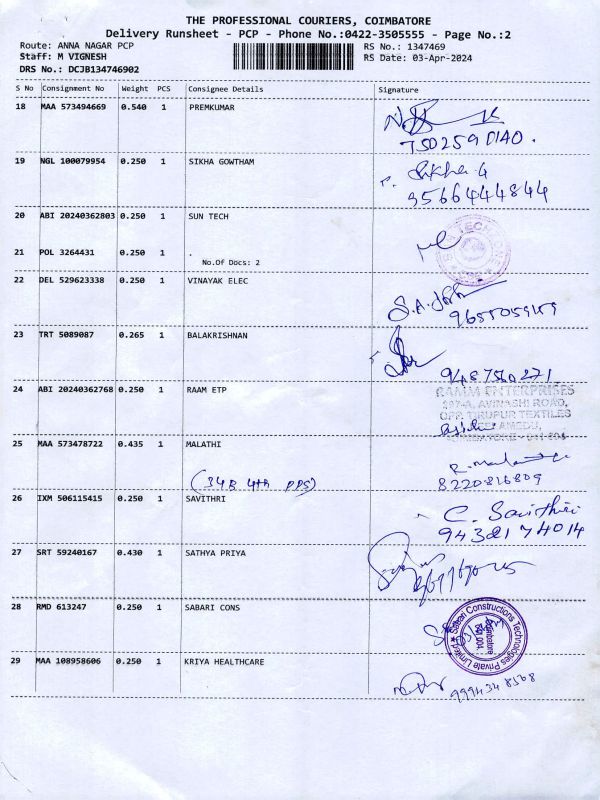 THE PROFESSIONAL COURIERS, COIMBATORE
Delivery Runsheet - PCP - Phone No.:0422-3505555 - Page No.:2
Route: ANNA NAGAR PCP RS No.: 1347469
Staff: M VIGNESH RS Date: 03-Apr-2024
DRS No.: DCJB134746902
S No Consignment No Weight PCS Consignee Details Signature
18 MAA 573494669 0.540 1 PREMKUMAR
19 NGL 100079954 0.250 1 SIKHA GOWTHAM
Sikha G
9566444844
20 ABI 20240362803 0.250 1 SUN TECH
21 POL 3264431 0.250 1 .
No.Of Docs: 2
22 DEL 529623338 0.250 1 VINAYAK ELEC
23 TRT 5089087 0.265 1 BALAKRISHNAN
24 ABI 20240362768 0.250 1 RAAM ETP
RAAM ENTERPRISES
AVINASHI ROAD,
OPP. TIRUPUR TEXTILES
25 MAA 573478722 0.435 1 MALATHI
(34B 4th PPS)
8220816809
26 IXM 506115415 0.250 1 SAVITHRI
C. Savithri
27 SRT 59240167 0.430 1 SATHYA PRIYA
28 RMD 613247 0.250 1 SABARI CONS
Sabari Constructions Technologies Private Limited
Coimbatore
29 MAA 108958606 0.250 1 KRIYA HEALTHCARE
9994348568